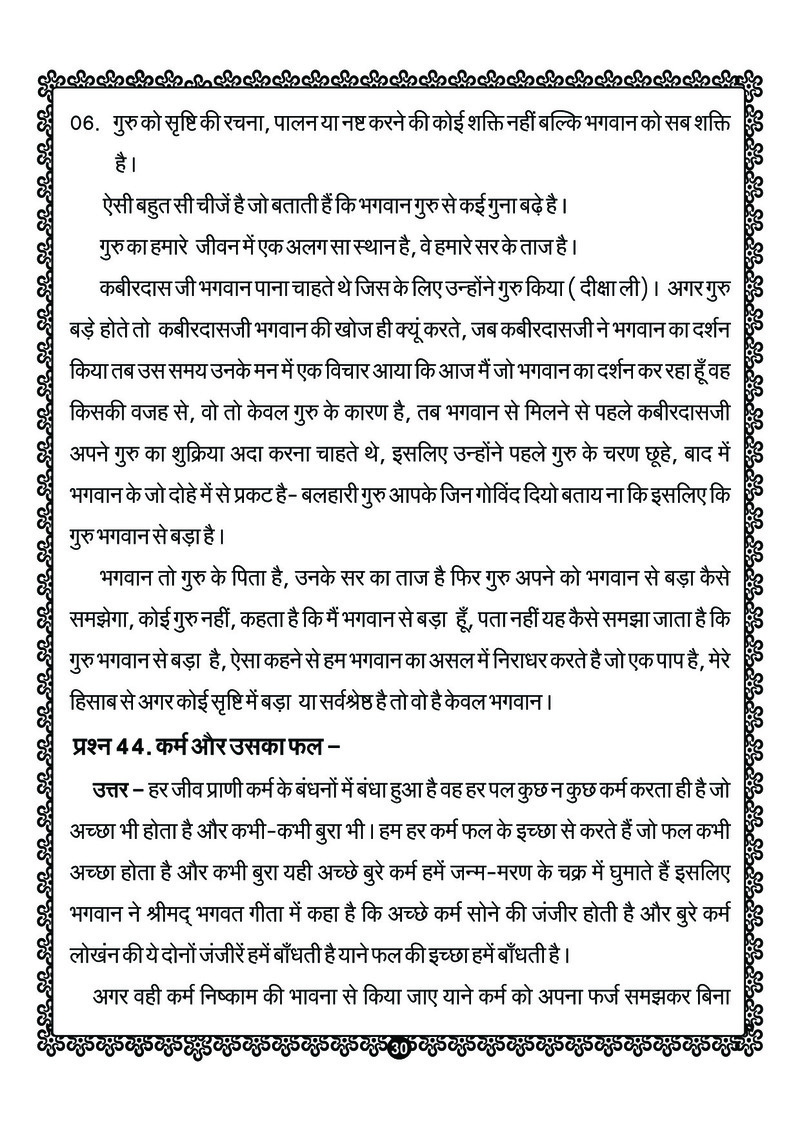 06. गुरु को सृष्टि की रचना, पालन या नष्ट करने की कोई शक्ति नहीं बल्कि भगवान को सब शक्ति
है।
ऐसी बहुत सी चीजें है जो बताती हैं कि भगवान गुरु से कई गुना बढ़े है।
गुरु का हमारे जीवन में एक अलग सा स्थान है, वे हमारे सर के ताज है।
कबीरदास जी भगवान पाना चाहते थे जिस के लिए उन्होंने गुरु किया ( दीक्षा ली)। अगर गुरु
बड़े होते तो कबीरदासजी भगवान की खोज ही क्यूं करते, जब कबीरदासजी ने भगवान का दर्शन
किया तब उस समय उनके मन में एक विचार आया कि आज मैं जो भगवान का दर्शन कर रहा हूँ वह
किसकी वजह से, वो तो केवल गुरु के कारण है, तब भगवान से मिलने से पहले कबीरदासजी
अपने गुरु का शुक्रिया अदा करना चाहते थे, इसलिए उन्होंने पहले गुरु के चरण छूहे, बाद में
भगवान के जो दोहे में से प्रकट है- बलहारी गुरु आपके जिन गोविंद दियो बताय ना कि इसलिए कि
गुरु भगवान से बड़ा है।
भगवान तो गुरु के पिता है, उनके सर का ताज है फिर गुरु अपने को भगवान से बड़ा कैसे
समझेगा, कोई गुरु नहीं, कहता है कि मैं भगवान से बड़ा हूँ, पता नहीं यह कैसे समझा जाता है कि
गुरु भगवान से बड़ा है, ऐसा कहने से हम भगवान का असल में निराधर करते है जो एक पाप है, मेरे
हिसाब से अगर कोई सृष्टि में बड़ा या सर्वश्रेष्ठ है तो वो है केवल भगवान।
प्रश्न 44. कर्म और उसका फल –
उत्तर – हर जीव प्राणी कर्म के बंधनों में बंधा हुआ है वह हर पल कुछ न कुछ कर्म करता ही है जो
अच्छा भी होता है और कभी-कभी बुरा भी। हम हर कर्म फल के इच्छा से करते हैं जो फल कभी
अच्छा होता है और कभी बुरा यही अच्छे बुरे कर्म हमें जन्म-मरण के चक्र में घुमाते हैं इसलिए
भगवान ने श्रीमद् भगवत गीता में कहा है कि अच्छे कर्म सोने की जंजीर होती है और बुरे कर्म
लोखंन की ये दोनों जंजीरें हमें बाँधती है याने फल की इच्छा हमें बाँधती है।
अगर वही कर्म निष्काम की भावना से किया जाए याने कर्म को अपना फर्ज समझकर बिना
30